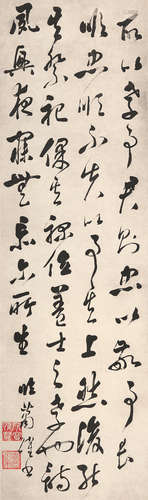 以孝事君則忠以敬事長
順忠順不失以事其上然後能
其祭祀保其祿位蓋士之孝也詩
夙興夜寐無忝爾所生